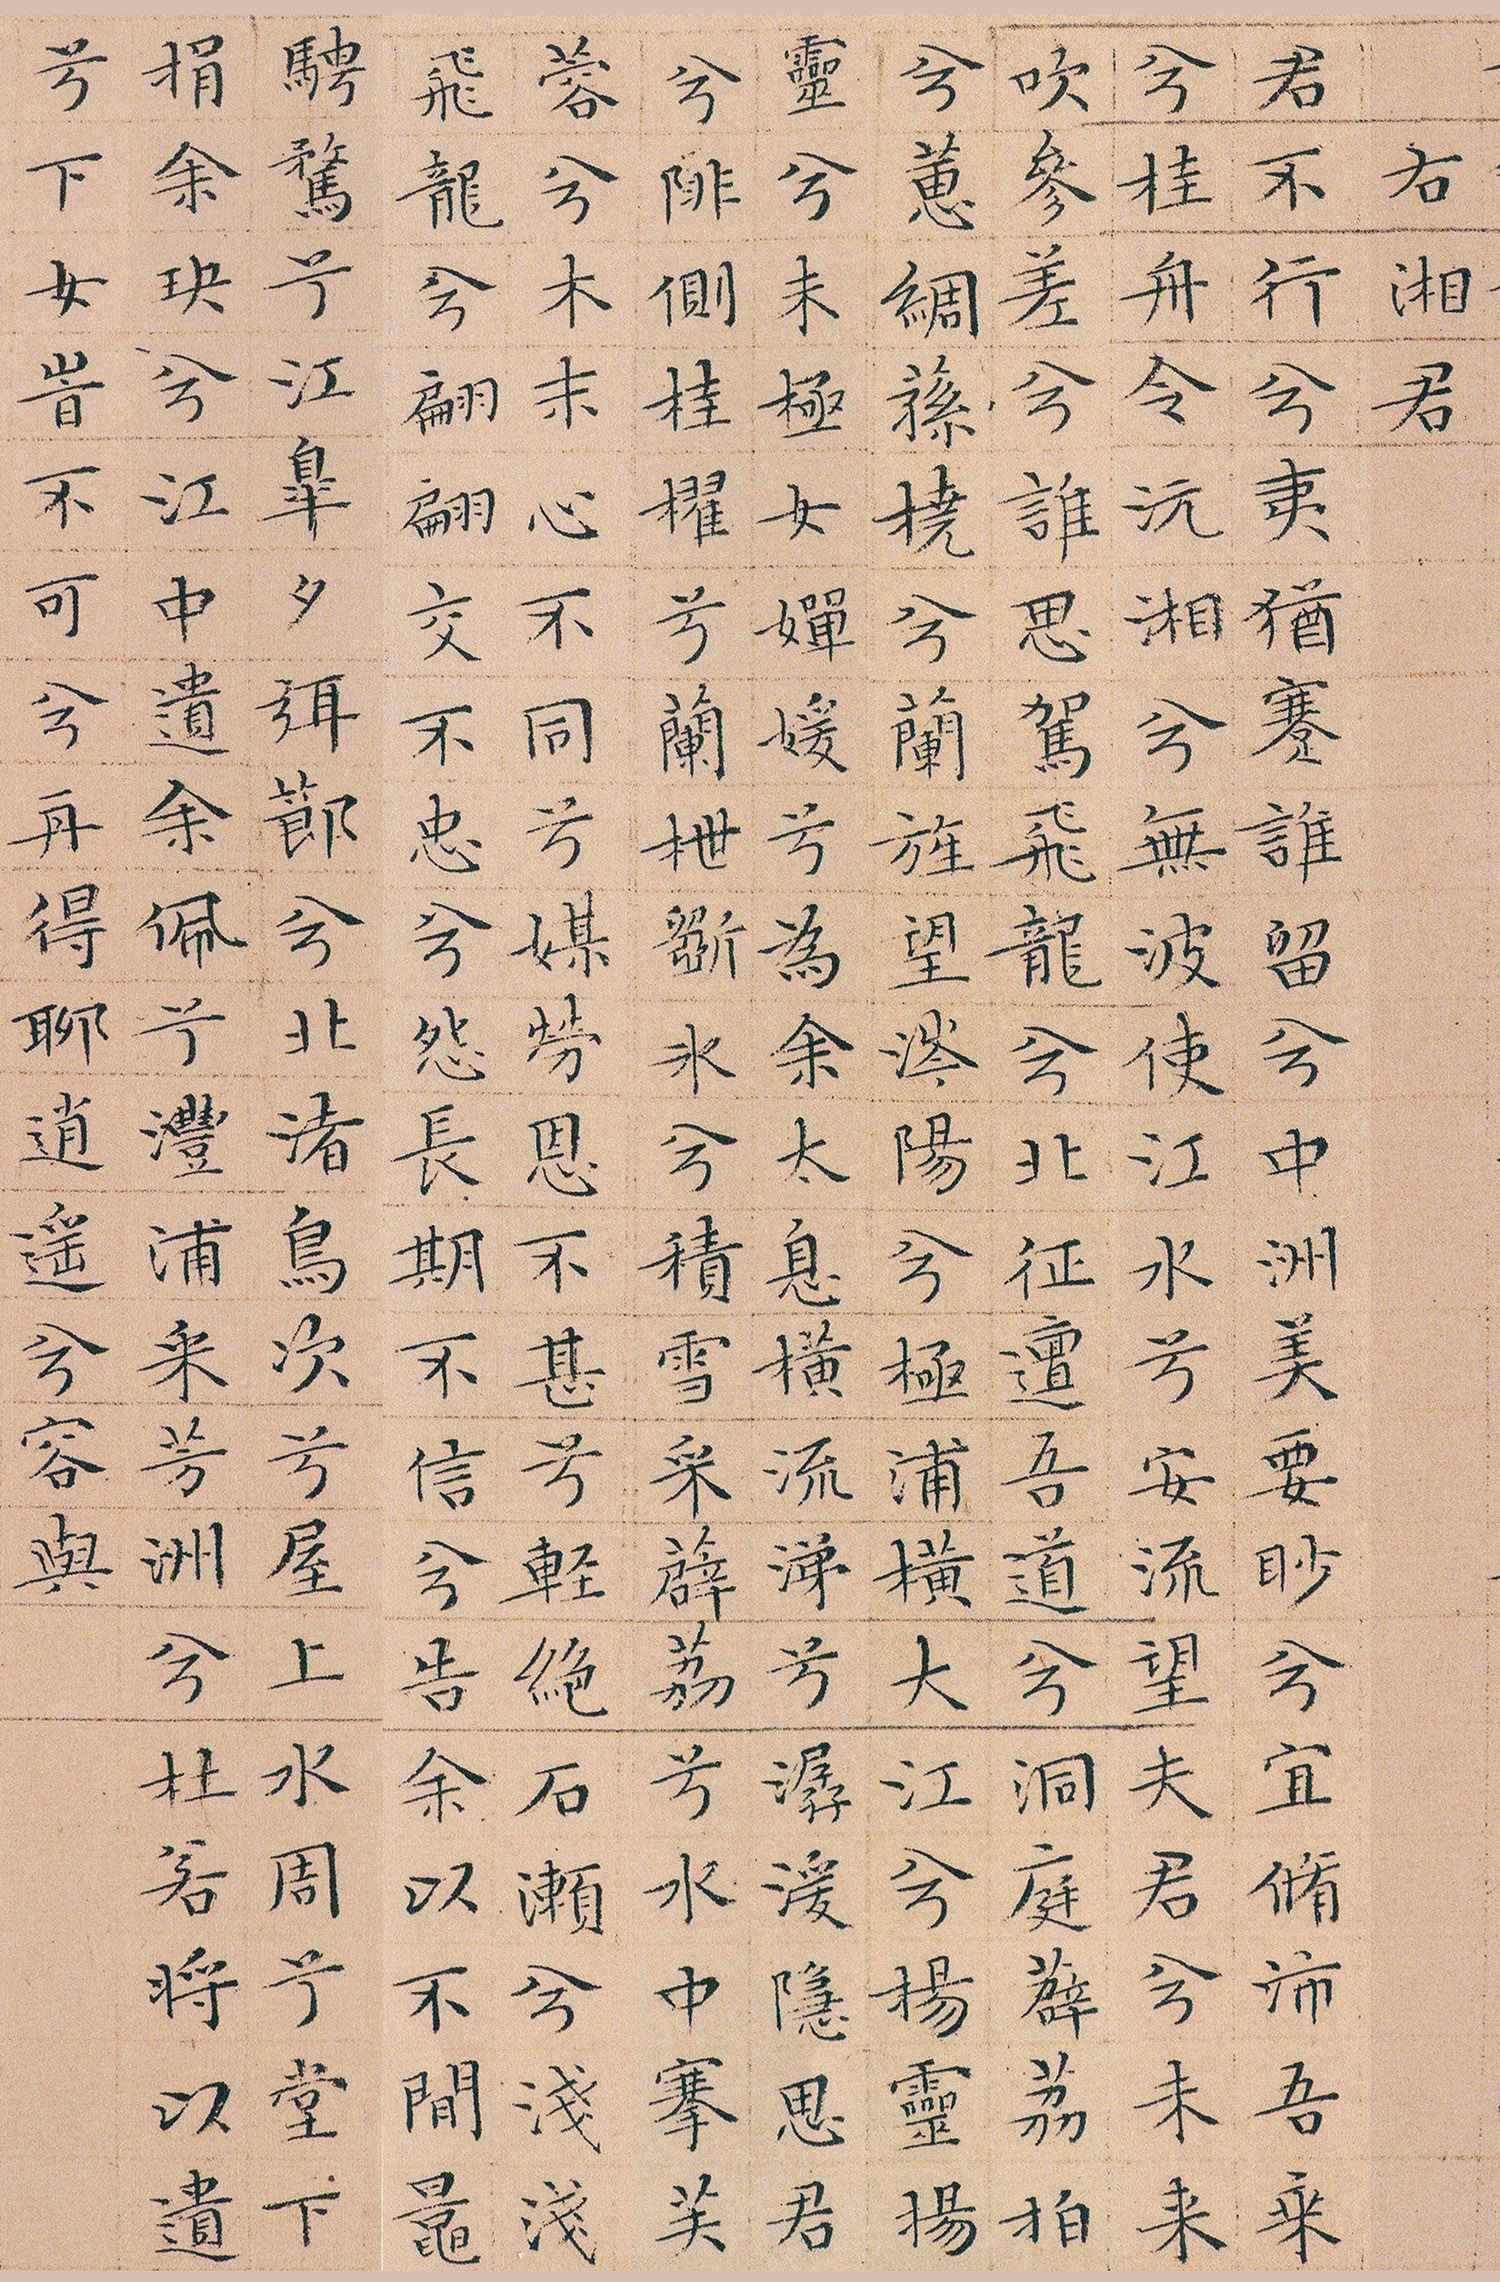 右湘君
君不行兮夷猶蹇誰留兮中洲美要眇兮宜脩沛吾乘
兮桂舟令沅湘兮無波使江水兮安流望夫君兮未来
吹參差兮誰思駕飛龍兮北征邅吾道兮洞庭薜荔拍
兮蕙綢蓀橈兮蘭旌望涔陽兮極浦橫大江兮揚靈揚
靈兮未極女嬋媛兮為余太息橫流涕兮潺湲隱思君
兮陫側桂櫂兮蘭枻斲冰兮積雪采薜荔兮水中搴芙
蓉兮木末心不同兮媒勞恩不甚兮軽絕石瀨兮淺淺
飛龍兮翩翩交不忠兮怨長期不信兮告余以不閒鼂
騁騖兮江皋夕弭節兮北渚鳥次兮屋上水周兮堂下
捐余玦兮江中遺余佩兮澧浦采芳洲兮杜若將以遺
兮下女旹不可兮再得聊逍遥兮容與